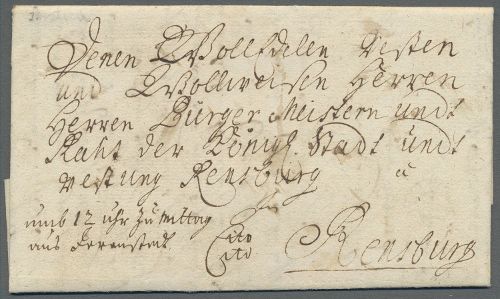 Denen WollEdelen Vesten
und Wollweisen Herren
Herren Bürger Meistern undt
Raht der Königl. Stadt undt
Vestung Rensburg
umb 12 uhr zu mittag
aus
Cito
Cito
Rensburg